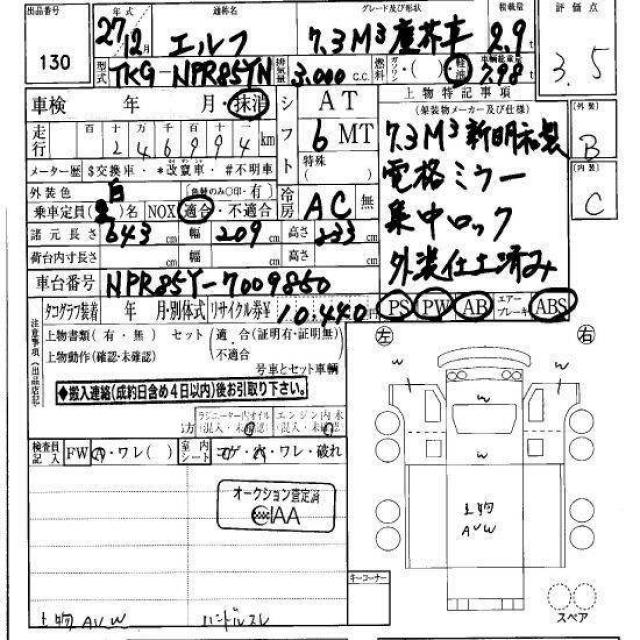 出品番号
130
年式
27年12月
通称名
エルフ
グレード及び形状
7.3M³塵芥車
積載量
2.9t
評価点
3.5
型式
TKG-NPR85YN
排気量
3,000 C.C.
燃料
ガソリン・( )・軽油
車輌総重量
798t
車検 年 月・抹消
シフト
AT
6 MT
特殊
( )
上物特記事項
(架装物メーカー及び仕様)
7.3M³ 新明和製
電格ミラー
集中ロック
外装仕上済み
(外装)
B
(内装)
C
走行
百 十 万 千 百 十
2 4 6 9 9 4 km
メーター歴 $交換車・*改竄車・#不明車
外装色
白
(色替のみ○印・有)
冷房
AC 無
乗車定員( )名 NOX 適合・不適合
諸元長さ 643cm 幅 209cm 高さ 233cm
荷台内寸長さ cm 幅 cm 高さ cm
車台番号 NPR85Y-7009850
タコグラフ装着 年 月・別体式 リサイクル券¥ 10,440円
PS PW AB エアーブレーキ ABS
注意事項(出品店記入)
上物書類(有・無) セット(適合(証明有・証明無)
上物動作(確認・未確認) 不適合
号車とセット車輌
◆搬入連絡(成約日含め4日以内)後お引取り下さい。
ラジエーター内オイル
(混入・未確認)
エンジン内水
(混入・未確認)
検査員記入
FW A・ワレ( )
室内シート
コゲ・穴・ワレ・破れ
オークション査定済
CIAA
左
右
W
W
W
W
上物
AUW
キーコーナー
スペア
上物 AUW
ハンドルスレ